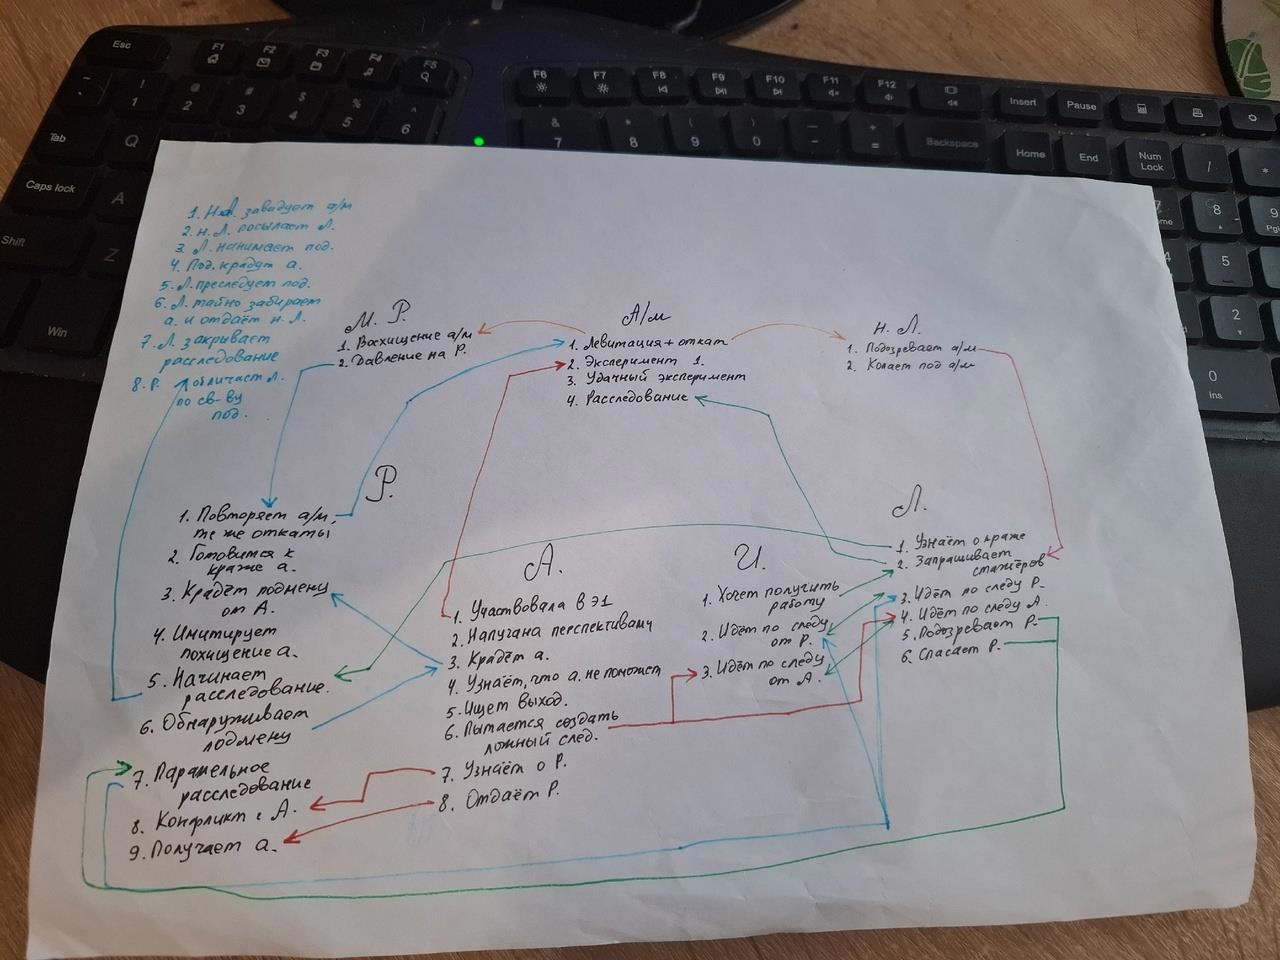 Esc
F1
F2
F3
F4
F5
F6
F7
F8
F9
F10
F11
F12
Insert
Pause
Tab
Q
Backspace
Home
End
Num Lock
Caps lock
A
Shift
Z
Win
1. Н.Л. заведует а/м
2. Н.Л. посылает Л.
3. Л. нанимает под.
4. Под. крадут а.
5. Л. преследует под.
6. Л. тайно забирает
а. и отдаёт н. Л.
7. Л. закрывает
расследование
8. Р. обличает Л.
по св-ву
под.
М. Р.
1. Восхищение а/м
2. Давление на Р.
А/м
1. Левитация + откат
2. Эксперимент 1.
3. Удачный эксперимент
4. Расследование
Н. Л.
1. Подозревает а/м
2. Копает под а/м
Р.
1. Повторяет а/м,
те же откаты
2. Готовится к
краже а.
3. Крадёт подмену
от А.
4. Имитирует
похищение а.
5. Начинает
расследование.
6. Обнаруживает
подмену
7. Параллельное
расследование
8. Конфликт с А.
9. Получает а.
А.
1. Участвовала в Э1
2. Напугана перспективами
3. Крадёт а.
4. Узнаёт, что а. не поможет
5. Ищет выход.
6. Пытается создать
ложный след.
7. Узнаёт о Р.
8. Отдаёт Р.
И.
1. Хочет получить
работу
2. Идёт по следу
от Р.
3. Идёт по следу
от А.
Л.
1. Узнаёт о краже
2. Запрашивает
стажёров
3. Идёт по следу Р.
4. Идёт по следу А.
5. Подозревает Р.
6. Спасает Р.